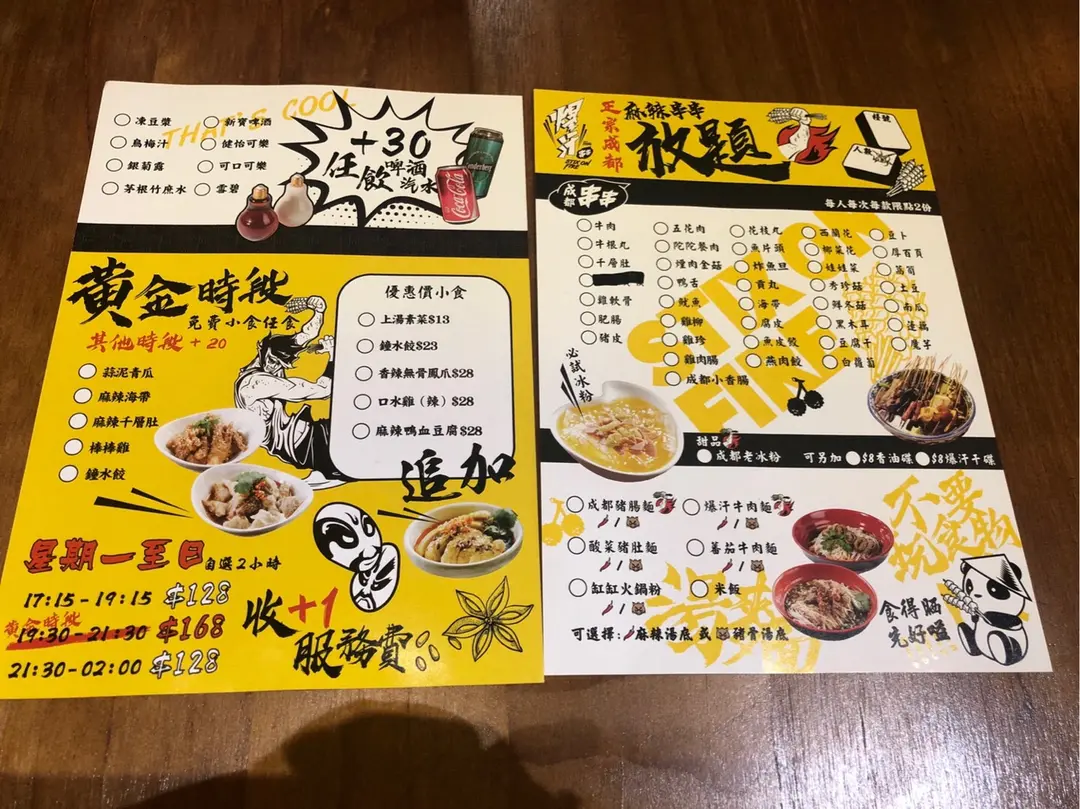 THAT'S COOL
凍豆漿
烏梅汁
銀菊露
茅根竹庶水
新寶啤酒
健怡可樂
可口可樂
雲碧
+30
任飲啤酒汽水
Coca-Cola
黃金時段
免費小食任食
其他時段+20
蒜泥青瓜
麻辣海帶
麻辣千層肚
棒棒雞
鐘水餃
優惠價小食
上湯素菜$13
鐘水餃$23
香辣無骨鳳爪$28
口水雞(辣)$28
麻辣鴨血豆腐$28
追加
星期一至日 自選2小時
17:15-19:15 $128
黃金時段
19:30-21:30 $168
21:30-02:00 $128
收+1服務費
正宗成都
麻辣串串
放題
STIX ON FIRE
檯號
人數
成都串串
每人每次每款限點2份
牛肉
牛根丸
千層肚
雞軟骨
肥腸
豬皮
五花肉
陀陀餐肉
煙肉金菇
鴨舌
魷魚
雞柳
雞珍
雞肉腸
成都小香腸
花枝丸
魚片頭
炸魚旦
貢丸
海帶
腐皮
魚皮餃
燕肉餃
西蘭花
椰菜花
娃娃菜
秀珍菇
鮮冬菇
黑木耳
豆腐干
白蘿蔔
豆卜
厚百頁
萵筍
土豆
南瓜
蓮藕
魔芋
STIX ON FIRE
必試冰粉
甜品
成都老冰粉
可另加 $8香油碟 $8爆汗干碟
成都豬腸麵
/
爆汗牛肉麵
/
酸菜豬肚麵
/
蕃茄牛肉麵
/
缸缸火鍋粉
/
米飯
可選擇:麻辣湯底 或 豬骨湯底
不要玩食物
食得晒
先好嗌